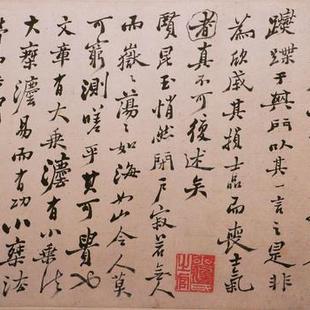 躞蹀于門以其一言之是非
為欣戚其損士品而喪士氣
者真不可復述矣
賢昆玉悄然閉戶寂若無人
而嶽〻蕩〻如海如山令人莫
可窮測嗟乎其可貴也
文章有大乘灋有小乘法
大乘灋易而有功小乘法